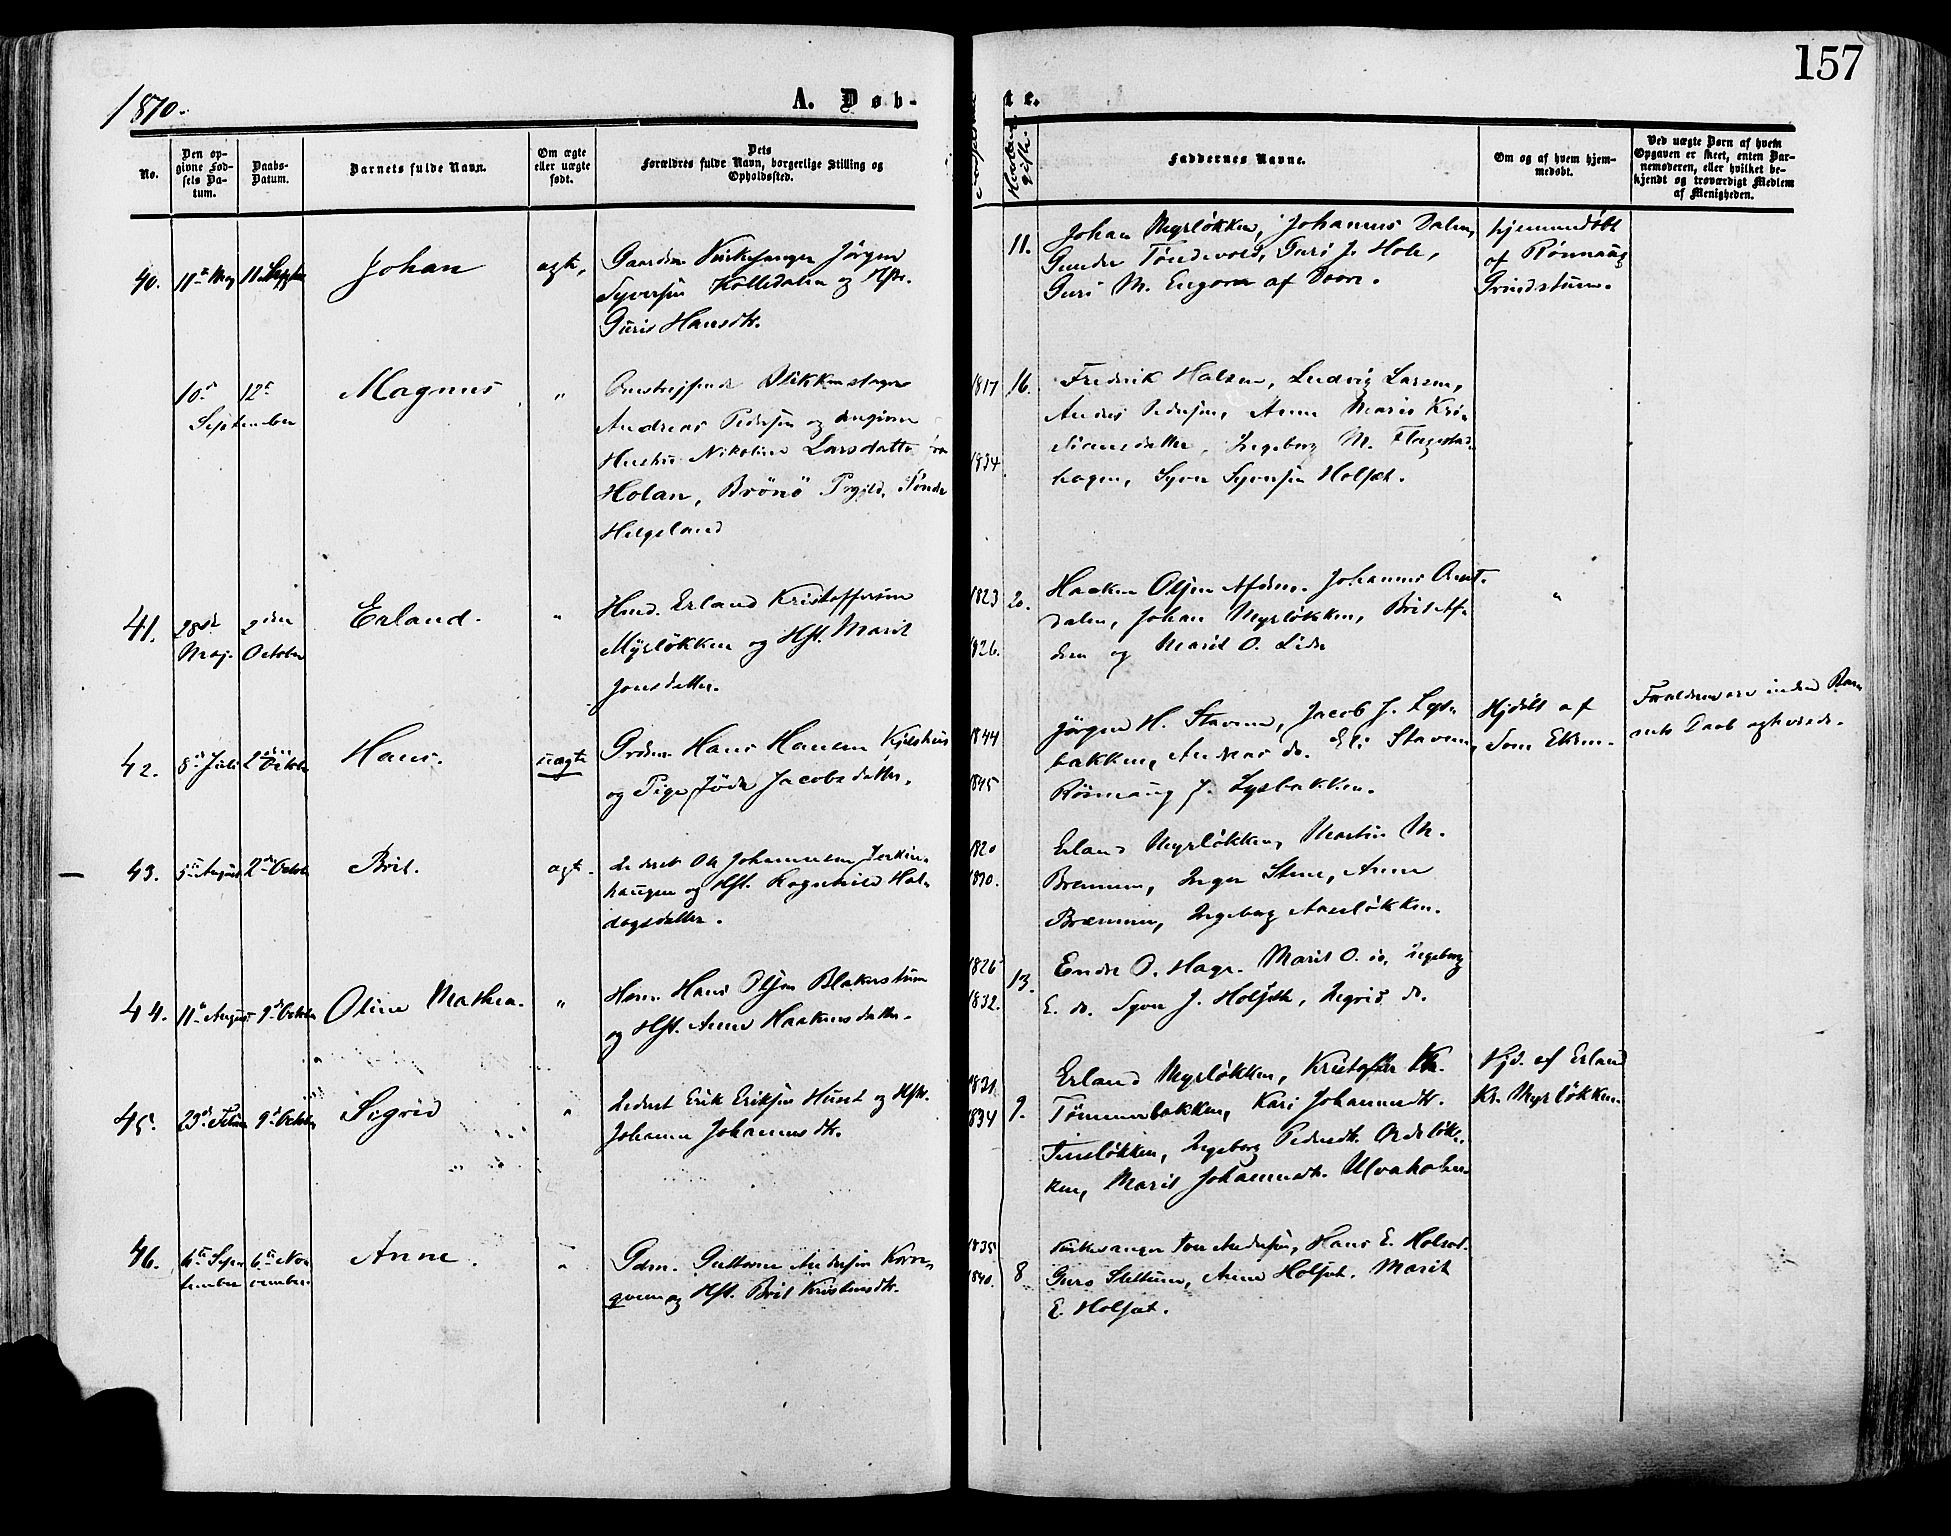 157
1870.
A. Døb-
te.
No.
Den op-
givne Fød-
sels Da-
tum.
Daabs-
Datum.
Barnets fulde Navn.
Om ægte
eller uægte
født.
Dets
Forældres fulde Navn, borgerlige Stilling og
Opholdssted.
Faddernes Navne.
Om og af hvem hjem-
medøbt.
Ved uægte Børn af hvem
Opgaven er skeet, enten Bar-
nemoderen, eller hvilket be-
kjendt og troværdigt Medlem
af Menigheden.
40.
11te Maj
11 Septbr
Johan
ægte,
Gaardm. Kirkesanger Jörgen
Syversen Kolledalen og Hst.
Guris Hansdtr.
11.
Johan Myrløkken, Johannes Dalen,
Tøndevold, Guri J. Hole,
Guri M. Engom af Dovre.
hjemmedöbt
af Rönnaug
Grindstuen.
10de 12te
September
Magnus
"
Omstreifende Blikkenslager
Andreas Pedersen og angivne
Hustru Nikoline Larsdatter fra
Holan, Brönö Prgjld, Söndr
Helgeland
1817
1834
16.
Fredrik Halsen, Ludvig Larsen,
Anders Pedersen, Anne Marie Kri-
stiansdatter, Ingeborg M. Flagstad-
hagen, Syver Syversen Holsæt.
41.
28de
Maj.
2den
October
Erland.
"
Hmd. Erland Kristoffersen
Myrløkken og Hst. Marit
Jonsdatter.
1823
1826.
20.
Haaken Olsen Afdem. Johannes
dalen, Johan Myrløkken, Brit Af-
dem og Marit O. Lider
"
42.
8de Juli
2den October
Hans.
uægte
Grdm. Hans Hansen Kjelshus
og Pige Jøde Jacobsdatter.
1844
1845
Jörgen H. Stavem, Jacob J. Lys-
bakken, Andreas do. Eli Stavem,
Rönnaug J. Lysbakken.
Hjdöbt af
Forældrene ere inden Bar-
nets Daab
43.
5te August
2den Octobr
Brit.
ægte.
Lederet Ole Johannesen Jerkin-
haugen og Hst. Ragnhild Hal-
dogsdatter.
1820
1830.
Erland Myrløkken, Martin M.
Brennom, Inger Stene, Anne
Brennom, Ingeborg Aaeløkken.
44.
11te August
9de October
Oline Mathea.
"
Hmd. Hans Olsen Blakerstuen
og Hst. Anne Haakensdatter.
1826
1832.
13.
Endre O. Hage. Marit O. do, Ingeborg
E. do. Syver J. Holseth, Ingrid do.
45.
23de Februar
9de October
Sigrid
"
Lederet Erik Eriksen Huset og Hst.
Johanne Johannesdtr.
1831
1834
9.
Erland Myrløkken, Kristoffer Kr.
Tømmerbakken, Kari Johannesdtr.
Ingeborg Pedersdtr.
ken, Marit Johannesdtr. Ulvaholm
Hjd. af Erland
Kr. Myrløkken.
46.
6te Sep-
tember
6te No-
vember.
Anne.
"
Gdm. Guttorm Andersen Korn-
qvem og Hst. Brit Kristensdtr.
1835
1840.
8
Kirkesanger Tore Andersen, Hans E. Holset.
Guro Slettum, Anne Holset. Marit
E. Holset.